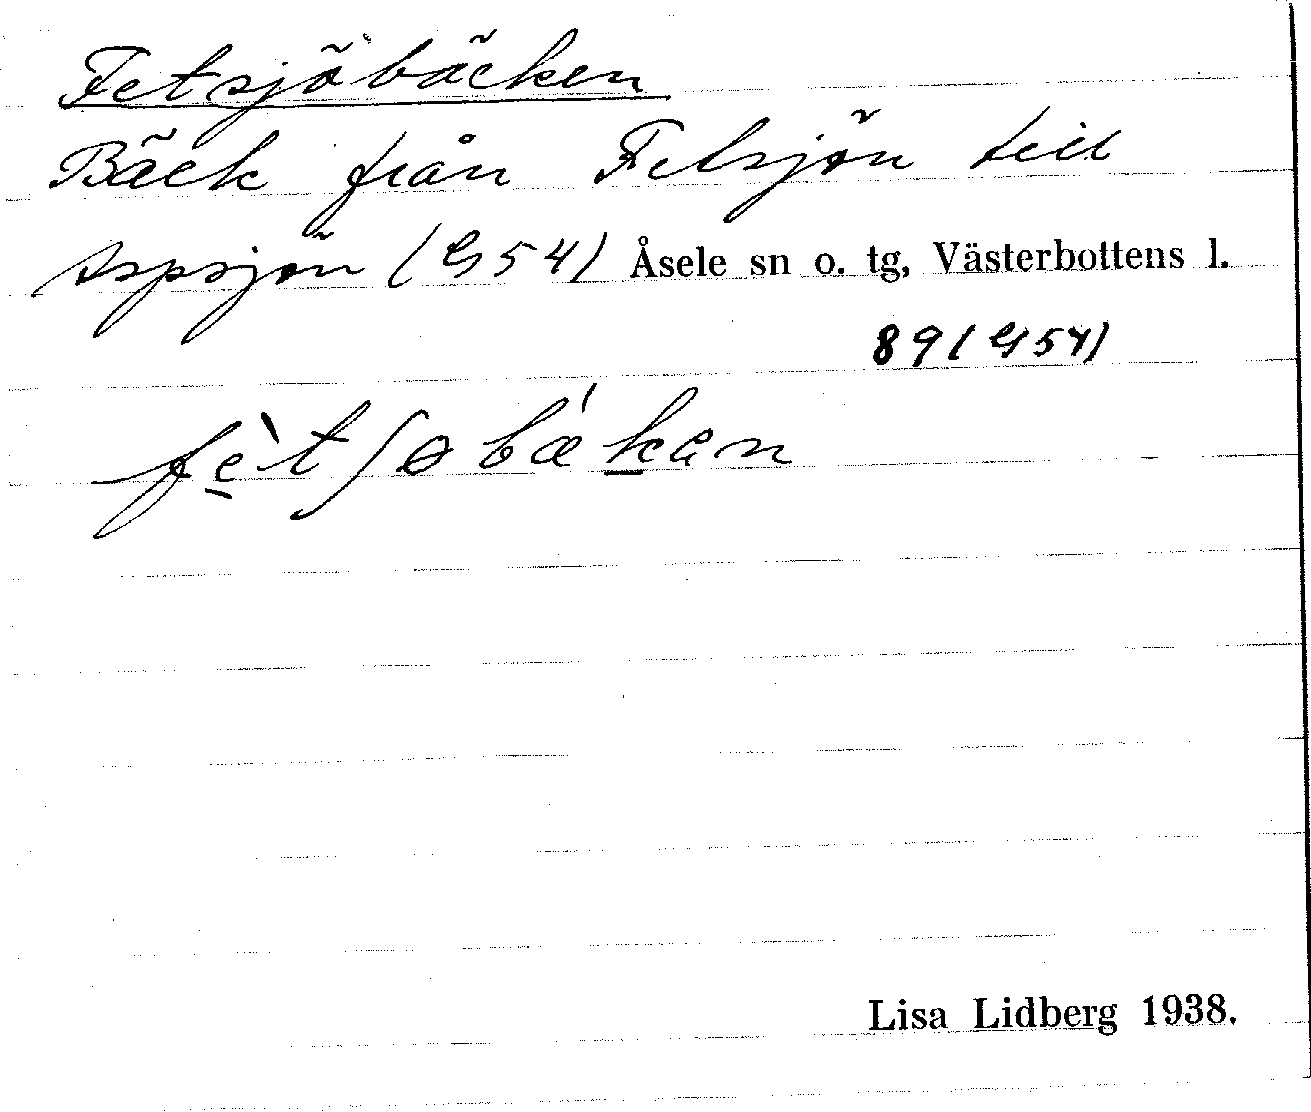 Fetsjöbäcken
Bäck från Fetsjön till
Aspsjön (G54) Åsele sn o. tg, Västerbottens l.
89 (G54)
fè̠tʃɵbǽk̠en
Lisa Lidberg 1938.